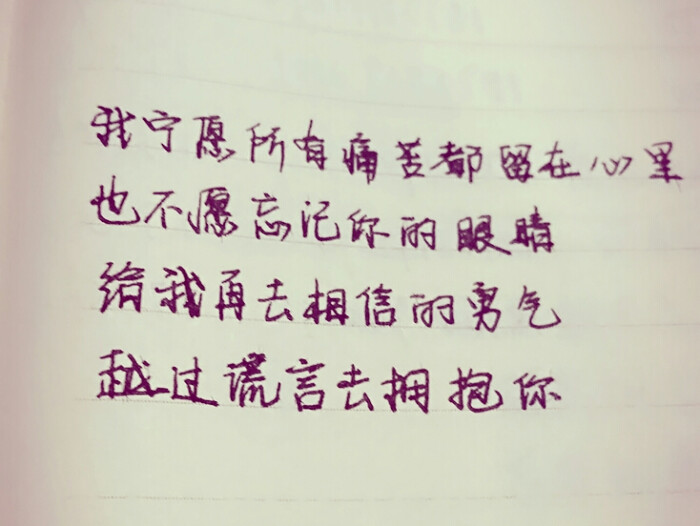 我宁愿所有痛苦都留在心里
也不愿忘记你的眼睛
给我再去相信的勇气
越过谎言去拥抱你